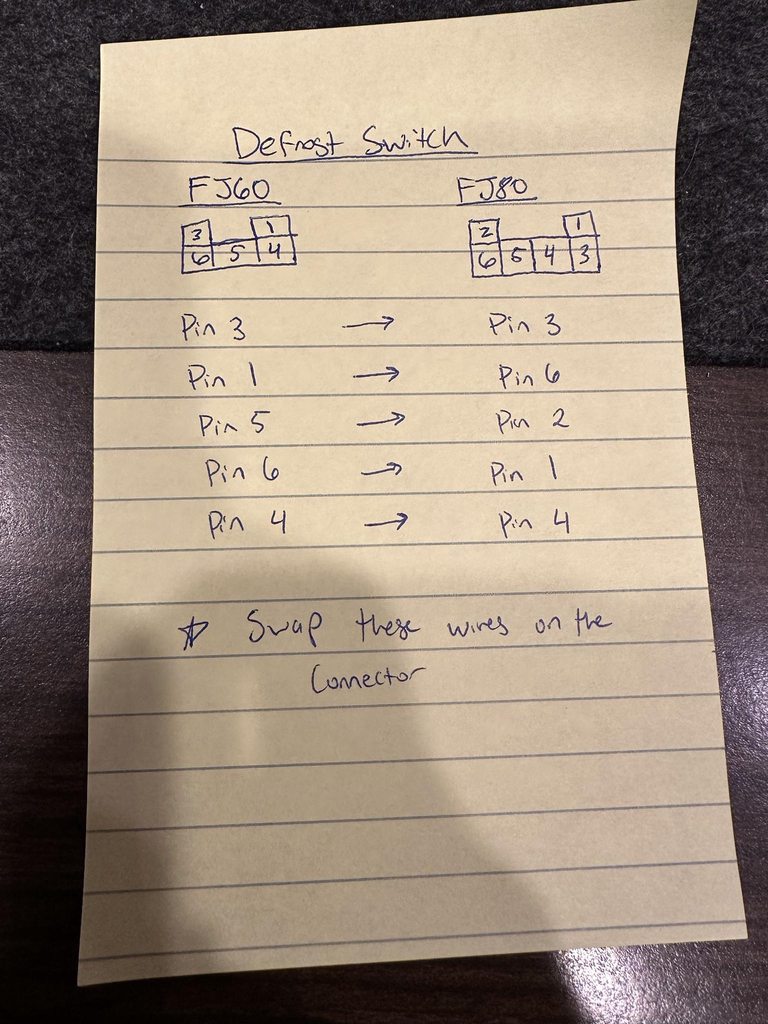 Defrost Switch
FJ60 FJ80
3 1 2 1
6 5 4 6 5 4 3
Pin 3 → Pin 3
Pin 1 → Pin 6
Pin 5 → Pin 2
Pin 6 → Pin 1
Pin 4 → Pin 4
☆ Swap these wires on the
Connector